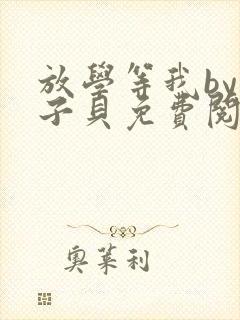 放學等我by
子貝免費閱
奧萊利